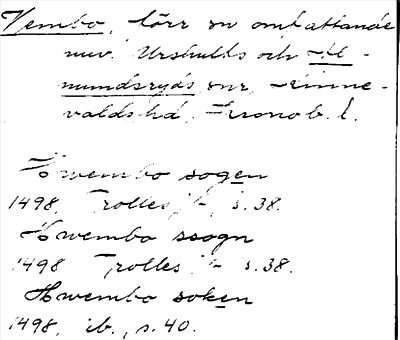 Vembo, förr sn omfattande
nuv. Urshults och Al-
mundsryds snr, Kinne-
valds hd, Kronob. l.
Hwembo sogen
1498 Trolles j., s. 38.
Hwembo ssogn
1498 Trolles j., s. 38.
Hwembo soken
1498, ib., s. 40.